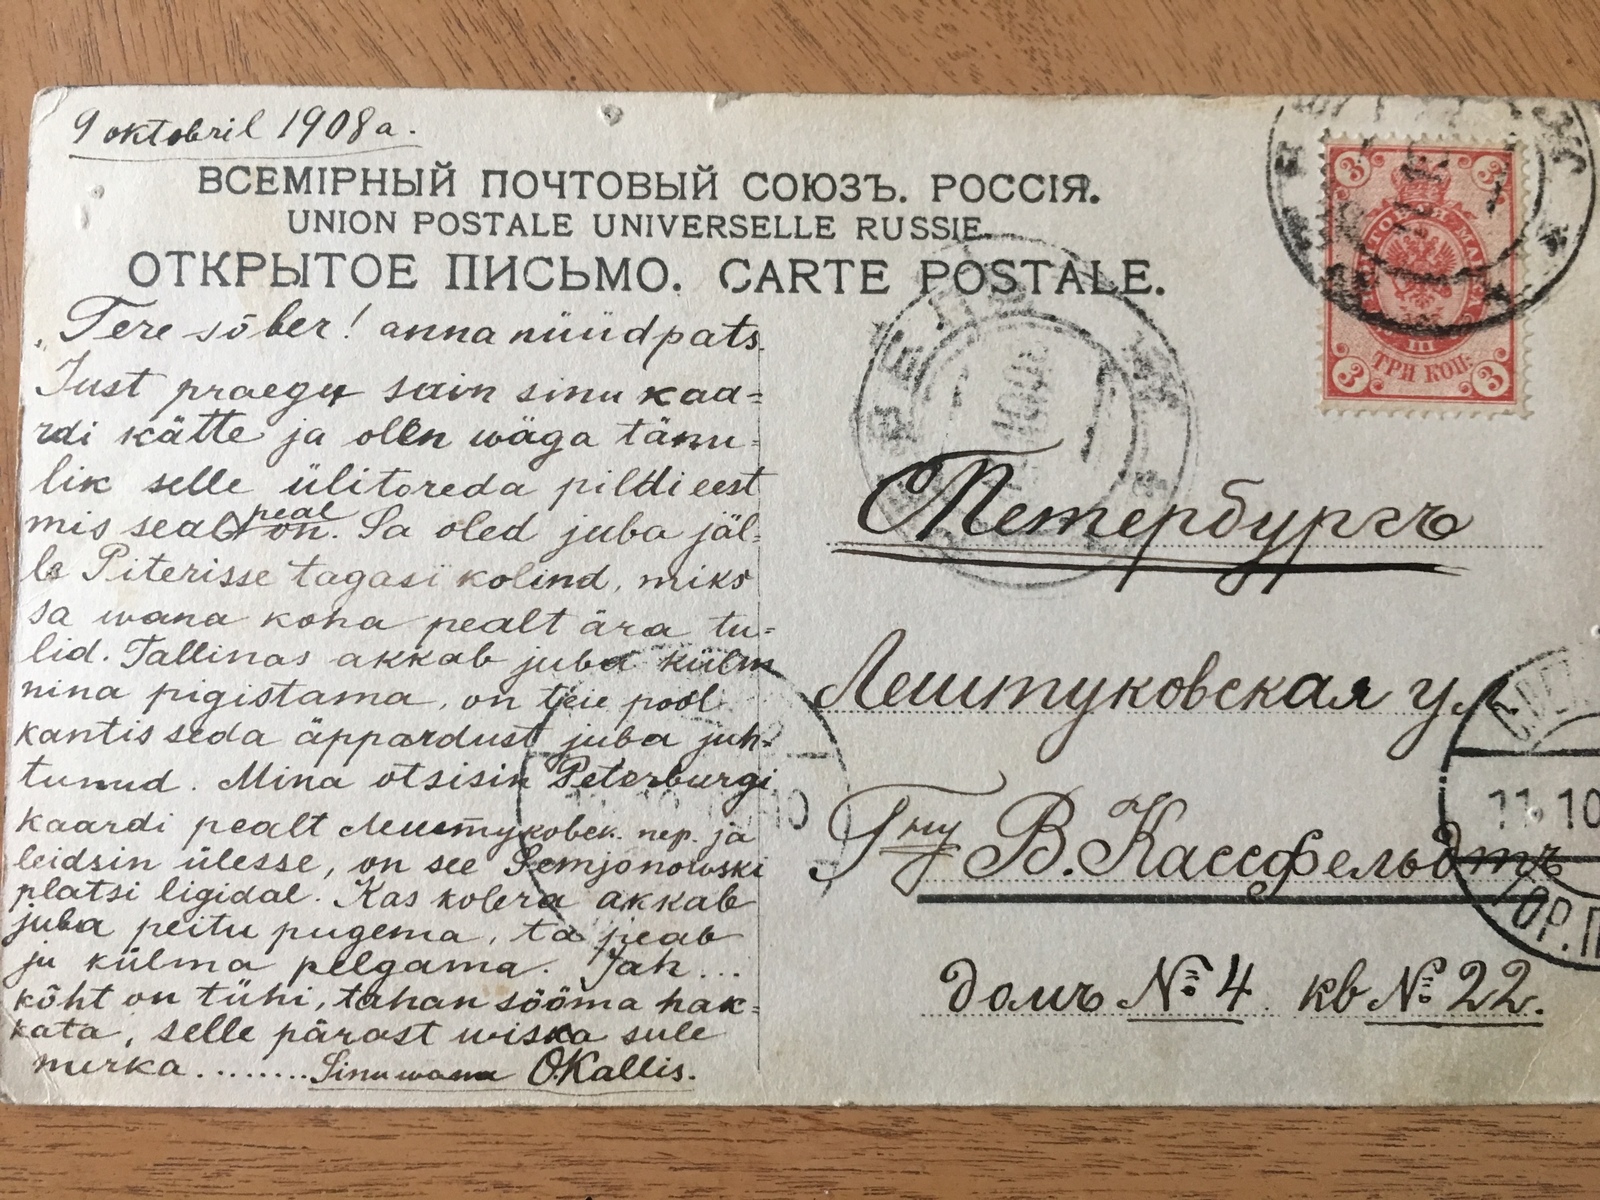 9 oktobril 1908 a.
ВСЕМІРНЫЙ ПОЧТОВЫЙ СОЮЗЪ. РОССІЯ.
UNION POSTALE UNIVERSELLE RUSSIE.
ОТКРЫТОЕ ПИСЬМО. CARTE POSTALE.
Tere sõber! anna nüüd pats.
Just praegu sain sinu kaa=
rdi kätte ja olen wäga tänu=
lik selle ülitoreda pildi eest
mis seal peal on. Sa oled juba jäl=
le Piterisse tagasi kolind, miks
sa wana koha pealt ära tu=
lid. Tallinas akkab juba külm
nina pigistama, on teie pool
kantis seda äppardust juba juh=
tunud. Mina otsisin Peterburgi
kaardi pealt Лештуковск. пер. ja
leidsin ülesse, on see Semjonowski
platsi ligidal. Kas kolera akkab
juba peitu pugema, ta peab
ju külma pelgama. Jah...
kõht on tühi, tahan sööma hak=
kata, selle pärast wiska sule
nurka........ Sinu wana O.Kallis.
3 3
ТРИ КОП.
3 3
Петербургъ
Лештуковская ул.
Гну В. Кассфельдтъ
домъ № 4 кв № 22.
11.10
ГОР. П
10